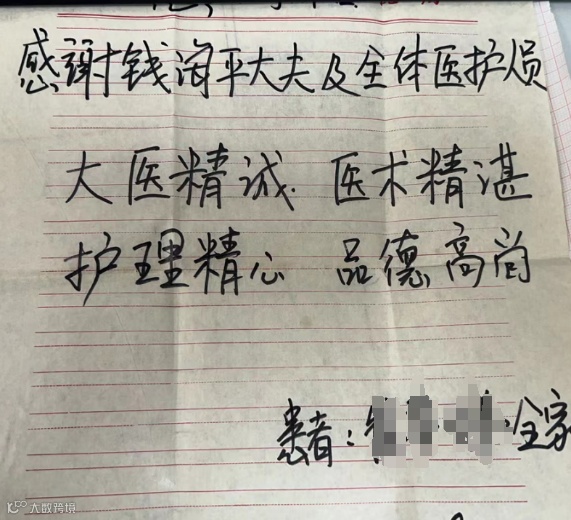 感谢钱海平大夫及全体医护人员
大医精诚. 医术精湛
护理精心 品德高尚
患者: 全家
大数跨境